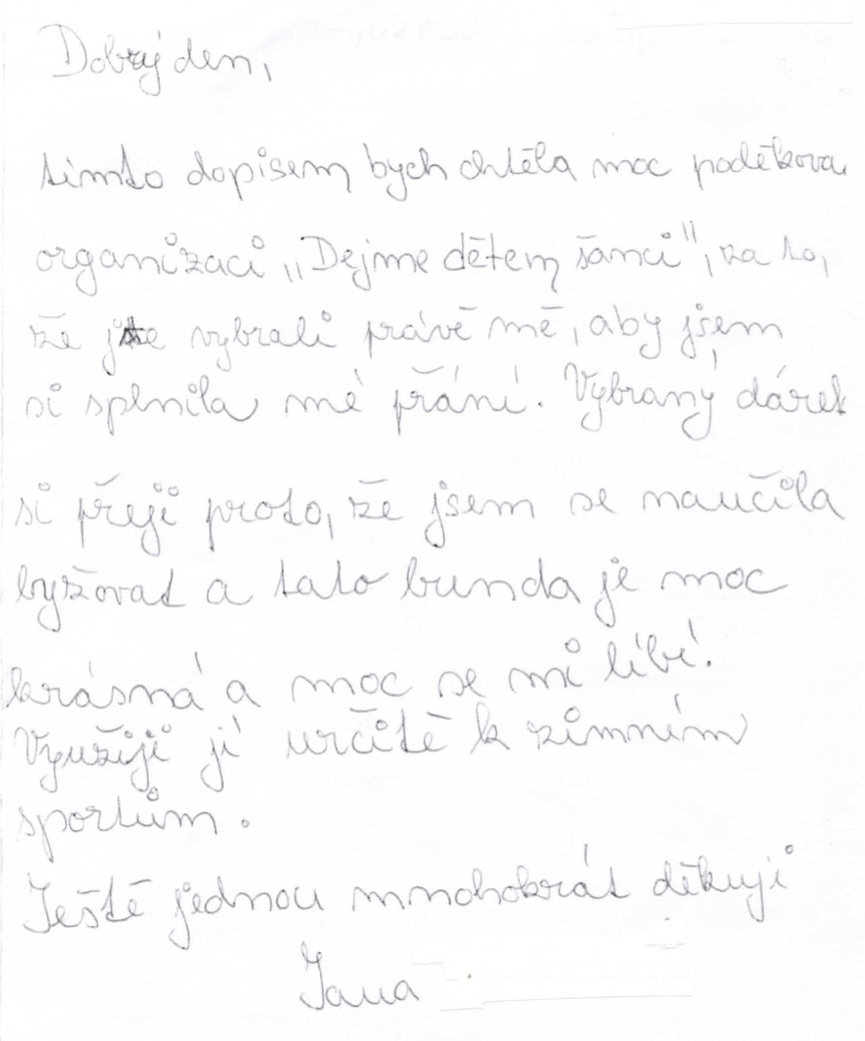 Dobrý den,
tímto dopisem bych chtěla moc poděkova
organizaci „Dejme dětem šanci", za to,
že jste vybrali právě mě, aby jsem
si splnila mé přání. Vybraný dárek
si přeji proto, že jsem se naučila
lyžovat a tato bunda je moc
krásná a moc se mi líbí.
Využiji jí určitě k zimním
sportům.
Ještě jednou mnohokrát děkuji
Jana